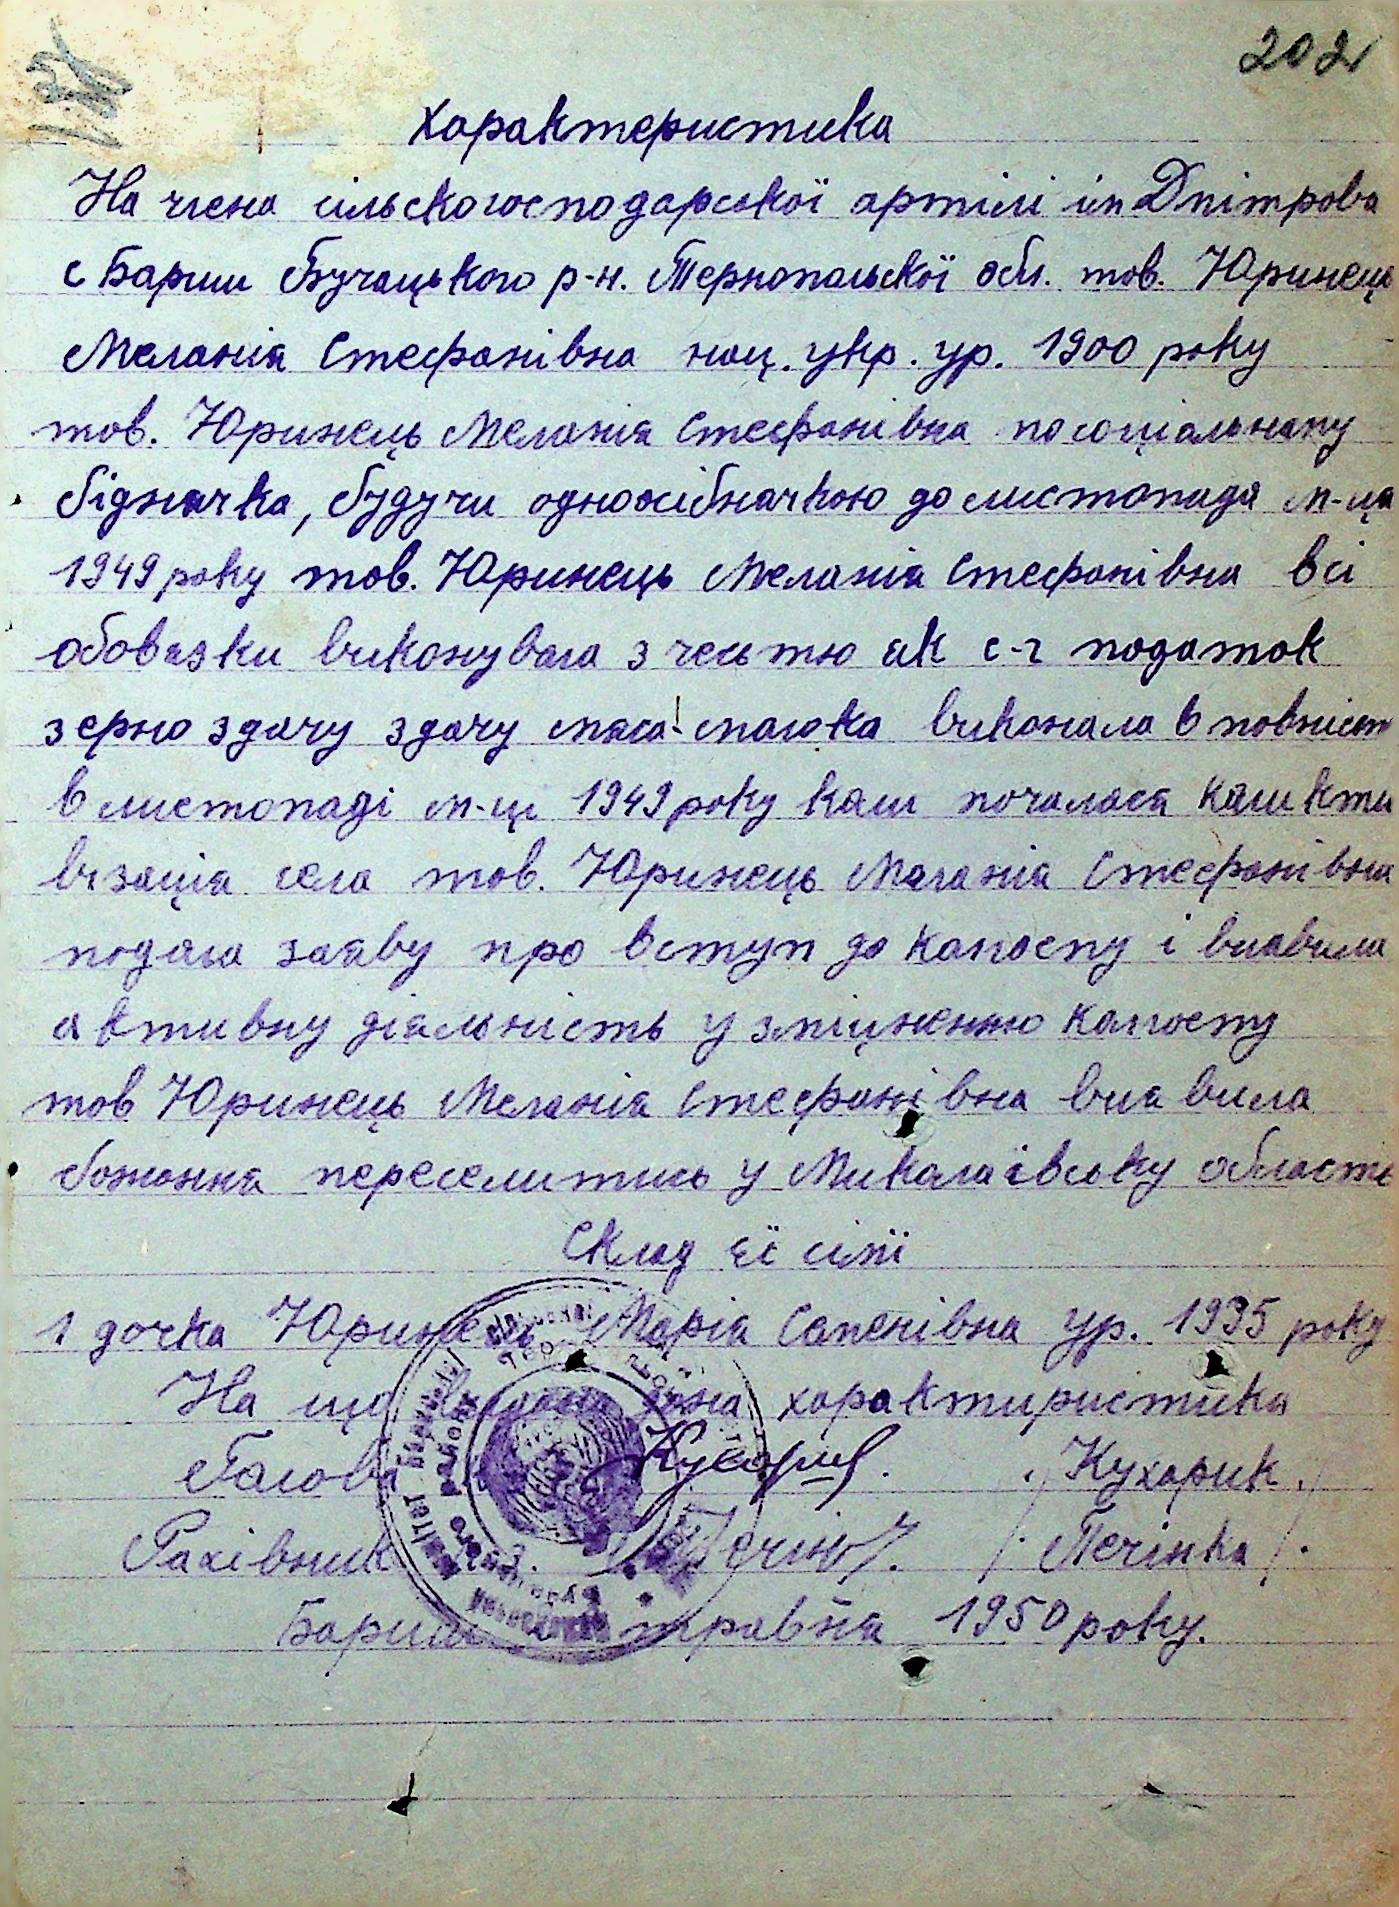 202
Характеристика
На члена сільскогосподарської артілі ім Дмітрова
с Бариш Бучацького р-н. Тернопольскої обл. тов. Юринець
Меланія Стефанівна нац. укр. ур. 1900 року
тов. Юринець Меланія Стефанівна по соціальнаму
біднячка, будучи одноосібначкою до листопада м-ця
1949 року тов. Юринець Меланія Стефанівна всі
обовязки виконувала з честью як с-г податок
зерно здачу здачу мяса молока виконала в повніст
в листопаді м-ці 1949 року коли почалася коликти
візація села тов. Юринець Меланія Стефанівна
подала заяву про вступ до колгоспу і виявила
активну діяльність у зміцненню колгоспу
тов Юринець Меланія Стефанівна виявила
божання переселитись у Миколаївську область
Склад її сімї
1 дочка Юринець Марія Семенівна ур. 1935 року
На що видана дана характиристика
Голова Кухарик
Рахівник Печінка
Бариш травня 1950 року.